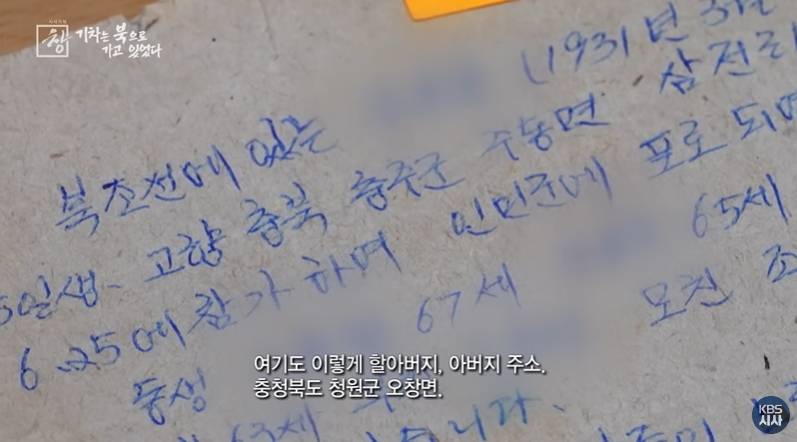 창 기차는 북으로
가고 있었다
북조선에 있는 (1931년 3월
5일생. 고향 충북 충주군 수동면 삼전리
6.25에 참가하며 인민군에 포로 되며
동생 67세 65세
모친
63세
여기도 이렇게 할아버지, 아버지 주소.
충청북도 청원군 오창면.
KBS
시사